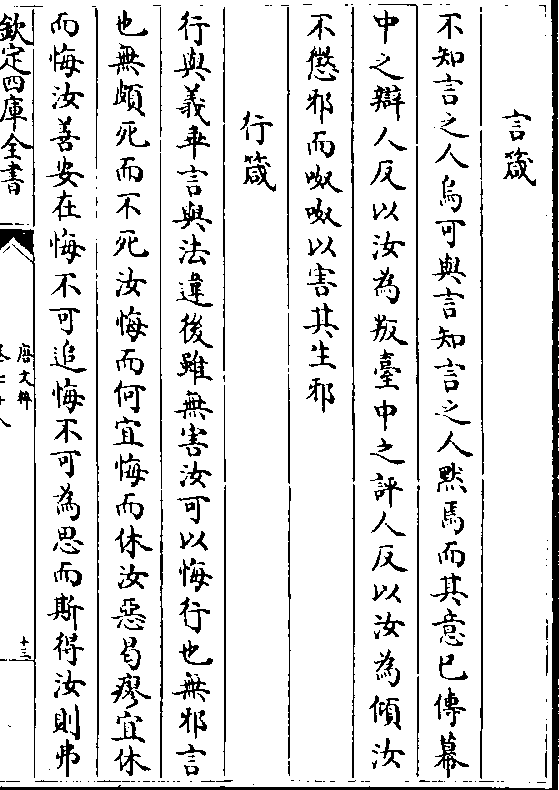 言箴
不知言之人烏可與言知言之人黙焉而其意已傳幕
中之辯人反以汝為叛臺中之評人反以汝為傾汝
不懲邪而呶呶以害其生邪
行箴
行與義乖言與法違後雖無害汝可以悔行也無邪言
也無頗死而不死汝悔而何宜悔而休汝惡曷瘳宜休
而悔汝善安在悔不可追悔不可為思而斯得汝則弗
欽定四庫全書
唐文粹
十三